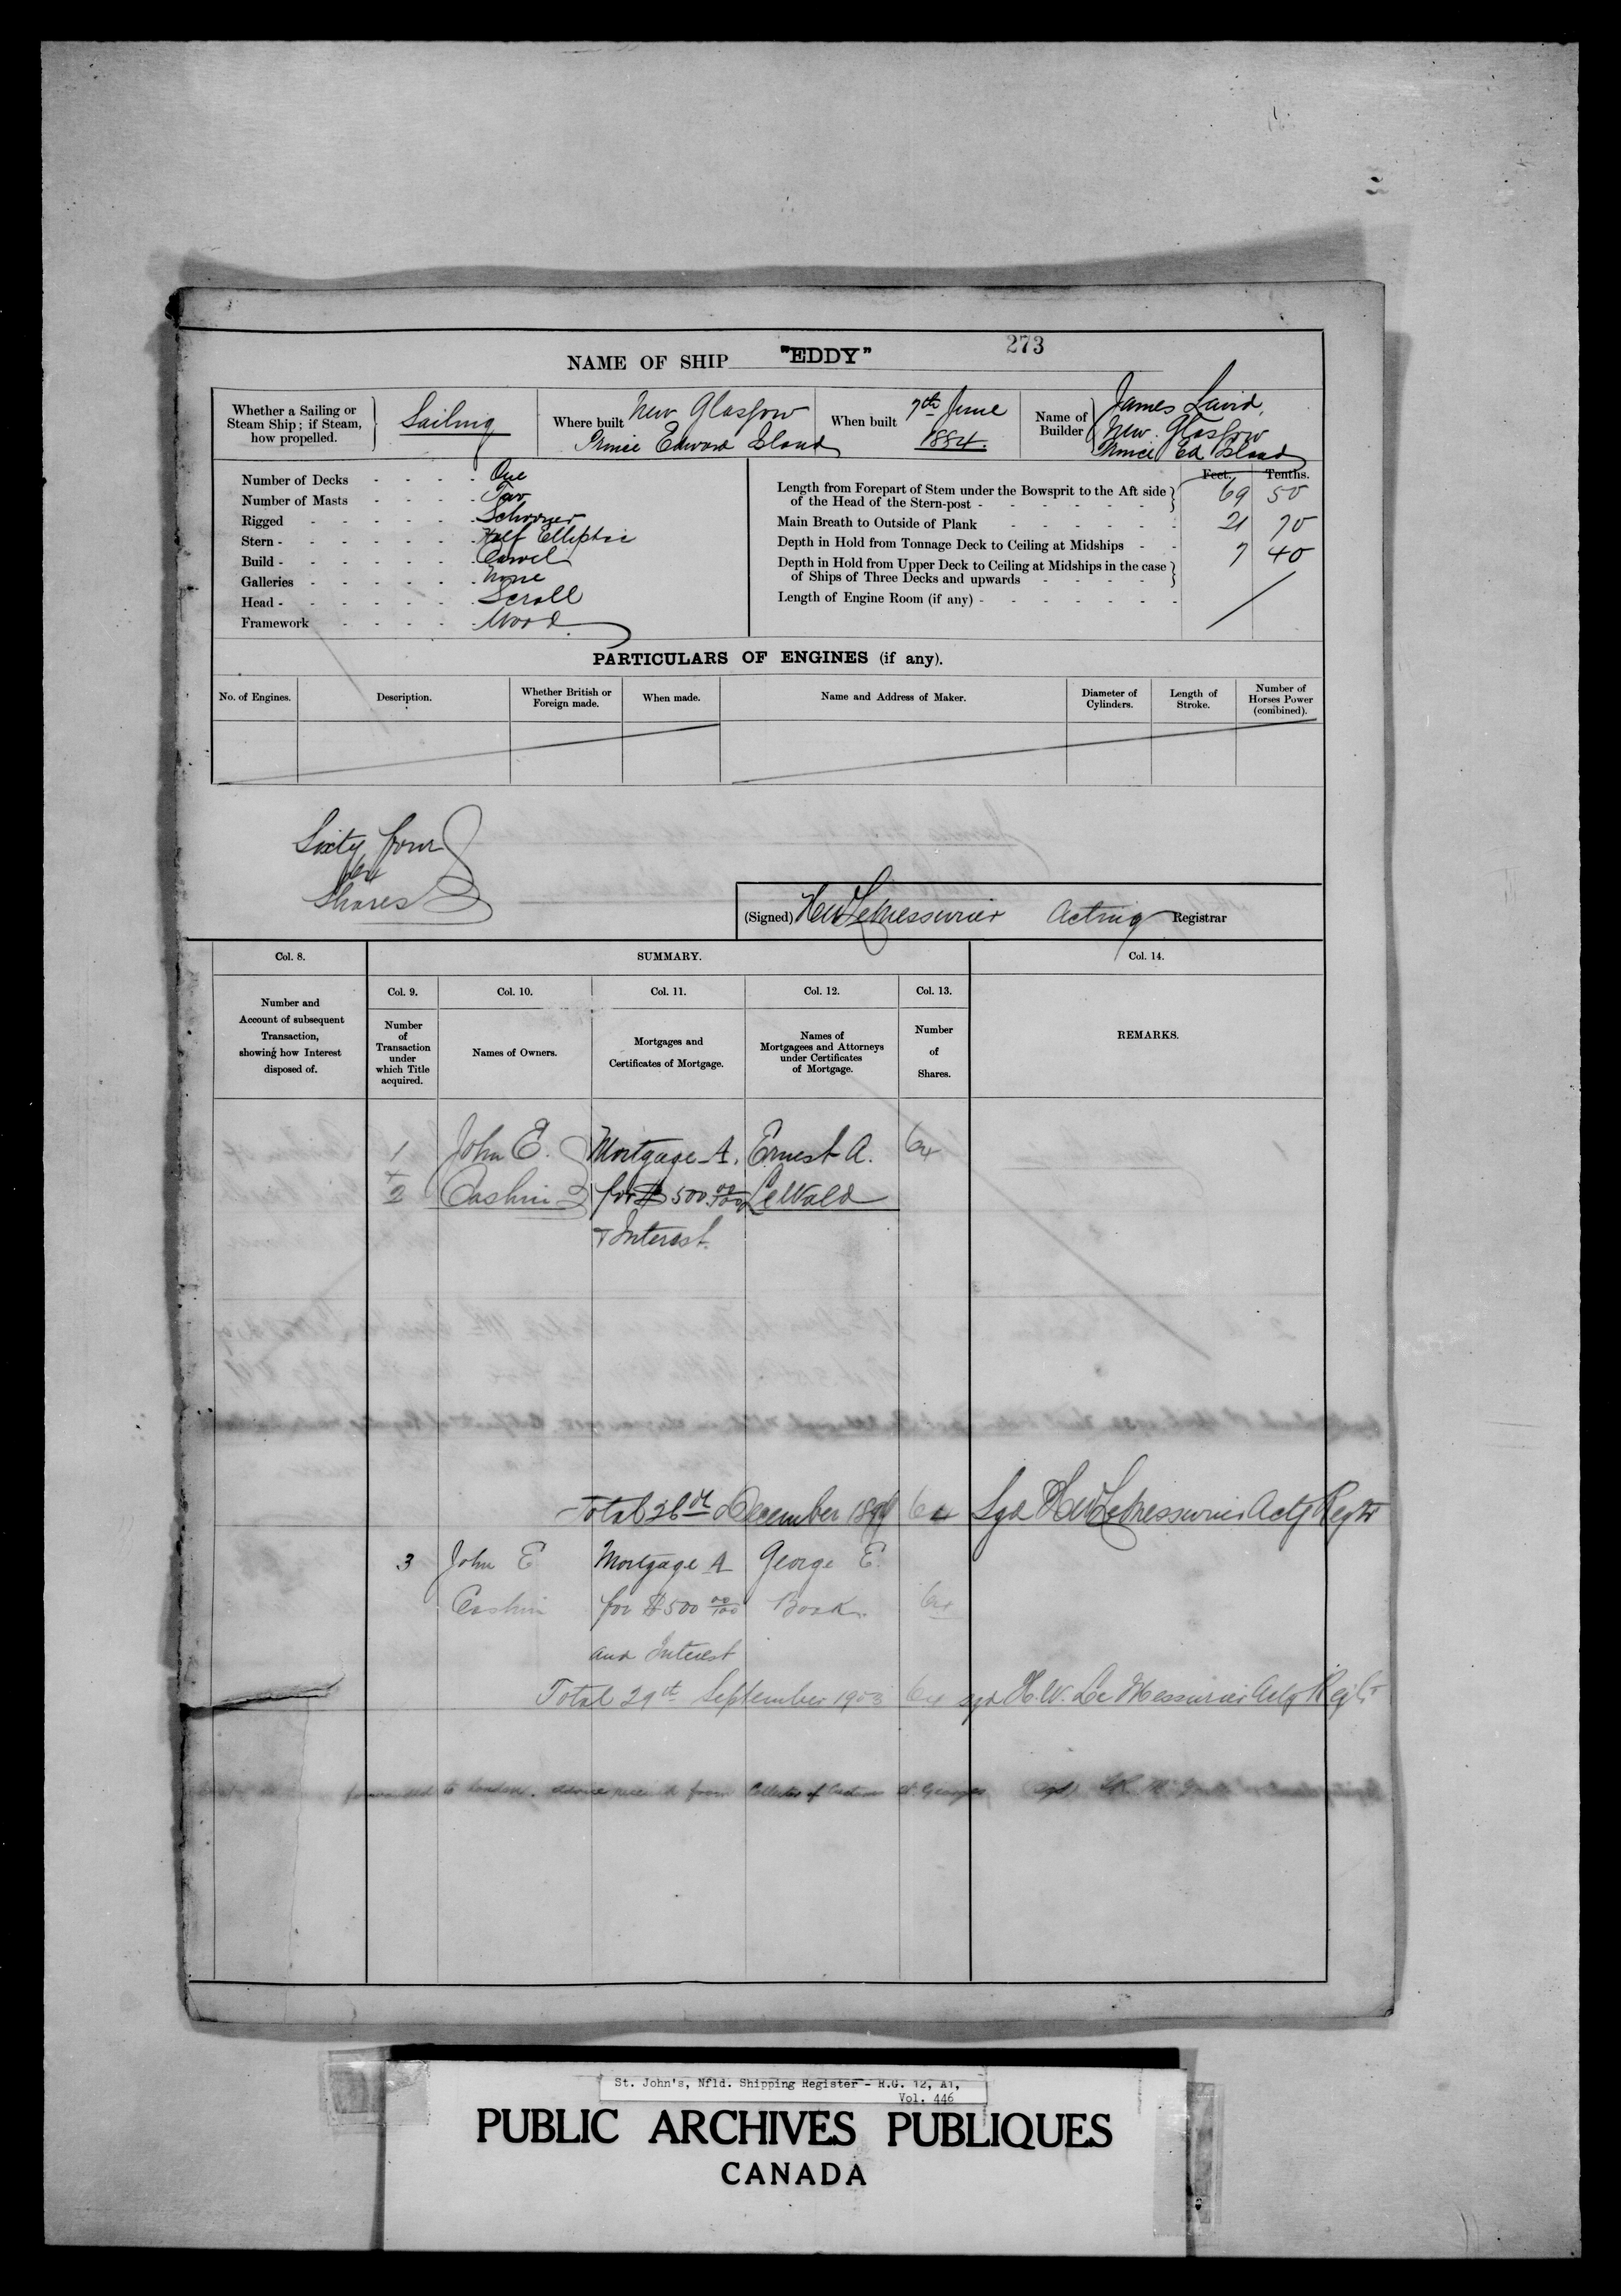 273
NAME OF SHIP "EDDY"
Whether a Sailing or Steam Ship; if Steam, how propelled. Sailing
Where built New Glasgow Prince Edward Island
When built 7th June 1884.
Name of Builder James Laird, New Glasgow Prince Ed Island
Number of Decks - - - - One
Number of Masts - - - - Two
Rigged - - - - - Schooner
Stern - - - - - - Half Elliptic
Build - - - - - - Carvel
Galleries - - - - - None
Head - - - - - - Scroll
Framework - - - - Wood
Feet. Tenths.
Length from Forepart of Stem under the Bowsprit to the Aft side of the Head of the Stern-post - 69 50
Main Breath to Outside of Plank - 21 70
Depth in Hold from Tonnage Deck to Ceiling at Midships - 7 40
Depth in Hold from Upper Deck to Ceiling at Midships in the case of Ships of Three Decks and upwards
Length of Engine Room (if any) -
PARTICULARS OF ENGINES (if any).
No. of Engines. Description. Whether British or Foreign made. When made. Name and Address of Maker. Diameter of Cylinders. Length of Stroke. Number of Horses Power (combined).
Sixty four
64
Shares
(Signed) H W LeMessurier Acting Registrar
Col. 8. SUMMARY. Col. 14.
Number and Account of subsequent Transaction, showing how Interest disposed of.
Col. 9. Col. 10. Col. 11. Col. 12. Col. 13.
Number of Transaction under which Title acquired.
Names of Owners.
Mortgages and Certificates of Mortgage.
Names of Mortgagees and Attorneys under Certificates of Mortgage.
Number of Shares.
REMARKS.
1 John E. Mortgage A. Ernest A. 64
+
2 Cashin for $500 00/100 LeWald
+ Interest.
Total 26th December 1899 64 Sgd H W LeMessurier Actg Regtr
3 John E Mortgage A George E.
Cashin for $500 00/100 64
and Interest
Total 29th September 1903 64 sgd H. W. Le Messurier Actg Regtr
forwarded to London. advice received from Collector of Customs St. Georges sgd
St. John's, Nfld. Shipping Register - R.G. 12, A1,
Vol. 446
PUBLIC ARCHIVES PUBLIQUES
CANADA